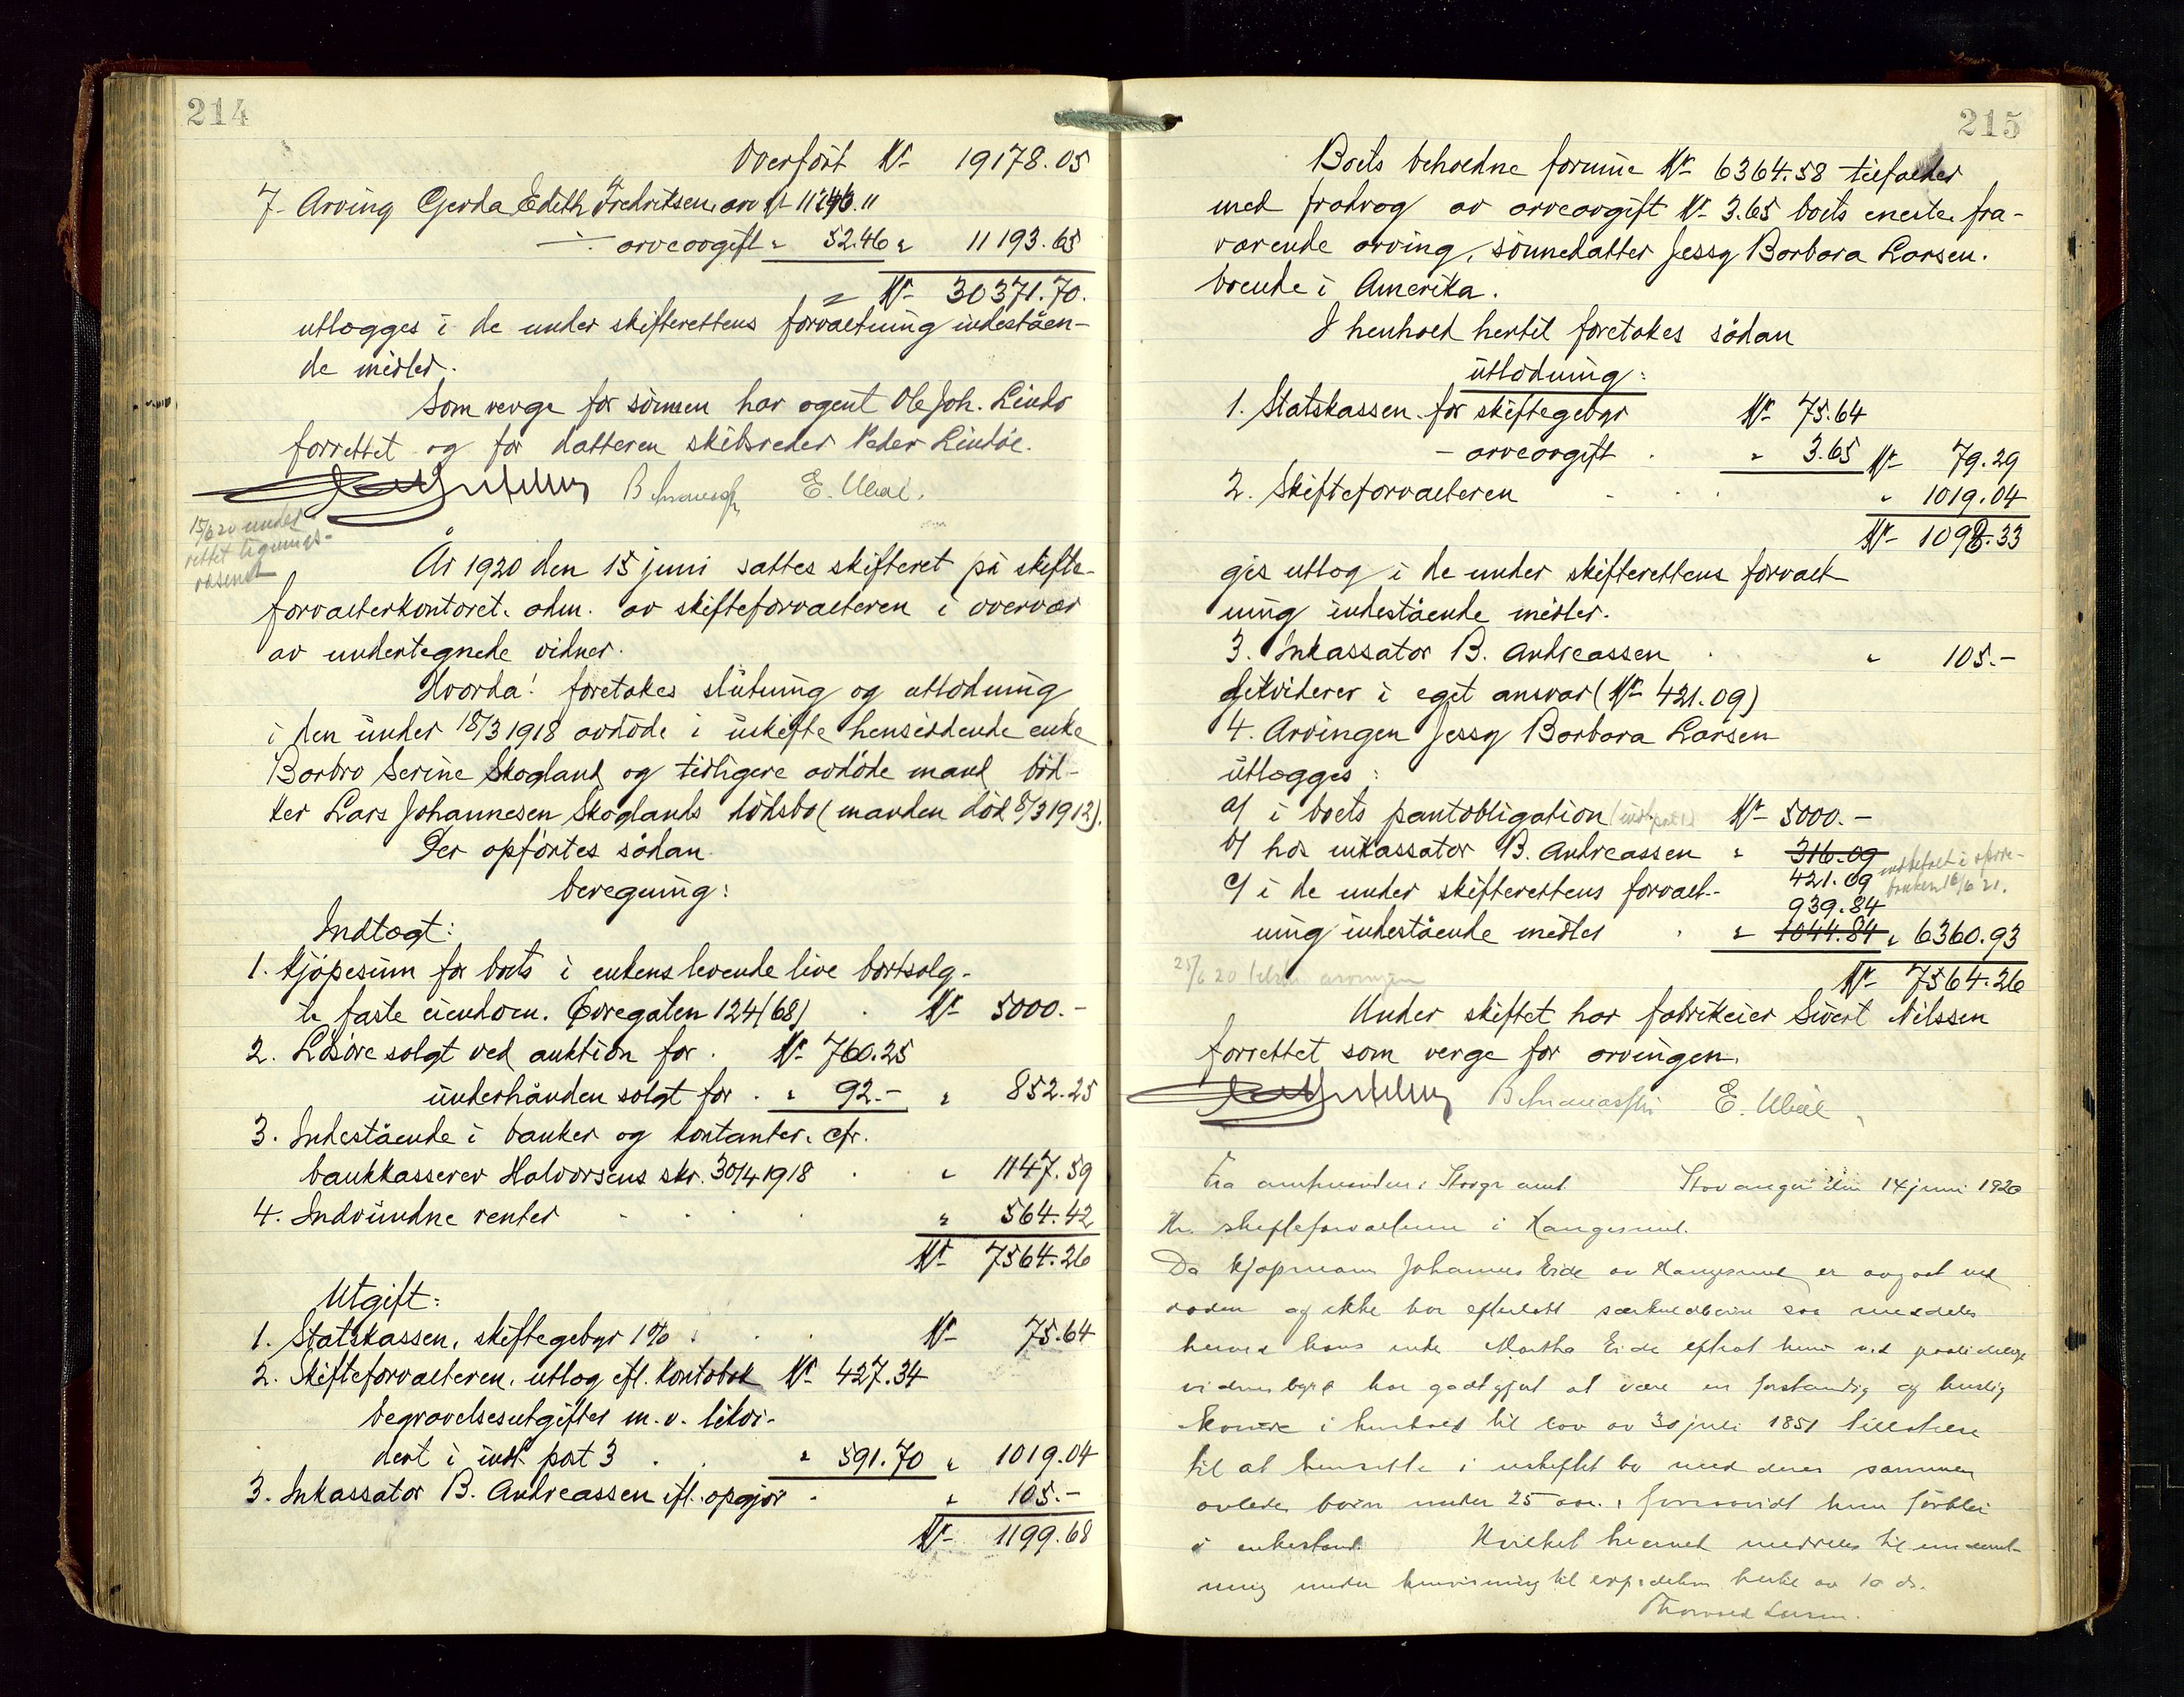 214
Overført Kr 19178.05
7. Arving Gerda Edith Fredriksen, arv Kr 11246.11
÷ arveavgift " 52.46 " 11193.65
= Kr 30371.70.
utlægges i de under skifterettens forvaltning indeståen-
de midler.
Som verge for sønnen har agent Ole Joh. Lindø
forrettet og for datteren skibsreder Peder Lindøe.
E. Ubøe.
15/6 20 under-
rettet lignings-
væsenet
År 1920 den 15 juni sattes skifteret på skifte-
forvalterkontoret, adm. av skifteforvalteren i overvær
av undertegnede vidner.
Hvorda! foretokes slutning og utlodning
i den under 18/3 1918 avdøde i uskifte hensiddende enke
Barbro Serine Skogland og tidligere avdøde mand bød-
ker Lars Johannesen Skoglands dødsbo (manden død 8/3 1912).
Der opførtes sådan
beregning:
Indtægt:
1. Kjøpesum for boets i enkens levende live bortsolg-
te faste eiendom. Øvregaten 124 (68) Kr 5000.-
2. Løsøre solgt ved auktion for . Kr 760.25
underhånden solgt for . " 92.- " 852.25
3. Indestående i banker og kontanter, cfr.
bankkasserer Halvorsens skr. 30/4 1918 . " 1147.59
4. Indvundne renter " 564.42
Kr 7564.26
Utgift:
1. Statskassen, skiftegebyr 1% . Kr 75.64
2. Skifteforvalteren, utlæg efl. kontobok Kr 427.34
begravelsesutgifter m.v. likvi-
dert i indt. post 3 . " 591.70 " 1019.04
3. Inkassator B. Andreassen efl. opgjør . " 105.-
Kr 1199.68
215
Boets beholdne formue Kr 6364.58 tilfalder
med fradrag av arveavgift Kr 3.65 boets eneste fra-
værende arving, sønnedatter Jessy Barbara Larsen.
boende i Amerika.
I henhold hertil foretokes sådan
utlodning:
1. Statskassen for skiftegebyr Kr 75.64
- arveavgift . " 3.65 Kr 79.29
2. Skifteforvalteren " 1019.04
Kr 1098.33
gis utlæg i de under skifterettens forvalt-
ning indestående midler.
3. Inkassator B. Andreassen . " 105.-
likviderer i eget ansvar (Kr 421.09)
4. Arvingen Jessy Barbara Larsen
utlægges:
a) i boets pantobligation (indt. post 1) Kr 5000.-
b) hos inkassator B. Andreassen " 316.09
421.09
16/6 21.
c) i de under skifterettens forvalt- 939.84
ning indestående midler . " 1044.84 " 6360.93
25/6 20 arvingen
Kr 7564.26
Under skiftet har fabrikeier Sivert Nilssen
forrettet som verge for arvingen.
E. Ubøe
Fra amtmanden i Stavgr amt. Stavanger den 14 juni 1920
Hr. skifteforvalteren i Haugesund.
Da kjøpmann Johannes Eide av Haugesund er avgaat ved
døden og ikke har efterlatt særkuldbørn saa meddeles
herved hans enke Martha Eide efterat hun ved paalidelige
vidnesbyrd har godtgjort at være en forstandig og huslig
kvinde i henhold til lov av 30 juli 1851 tilladelse
til at hensitte i uskiftet bo med deres sammen
avlede børn under 25 aar, forsaavidt hun forblir
i enkestand. Hvilket herved meddeles til underret-
ning under henvisning til expedition hertil av 10 ds.
Thorvald Larsen.